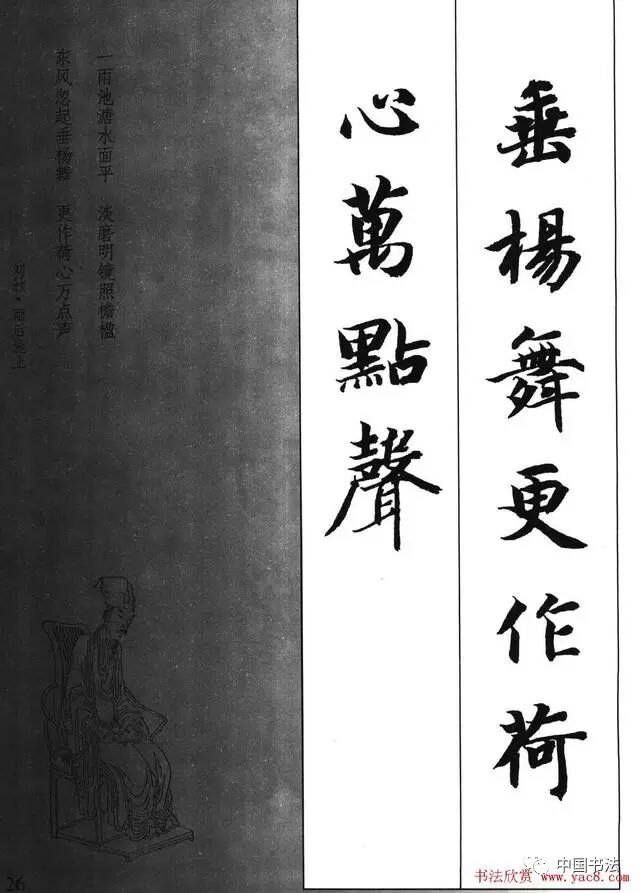 垂楊舞更作荷
心萬點聲
一雨池溏水面平 淡磨明镜照檐楹
东风忽起垂杨舞 更作荷心万点声
刘攽·雨后池上
26
中国书法
书法欣赏 www.yac8.com